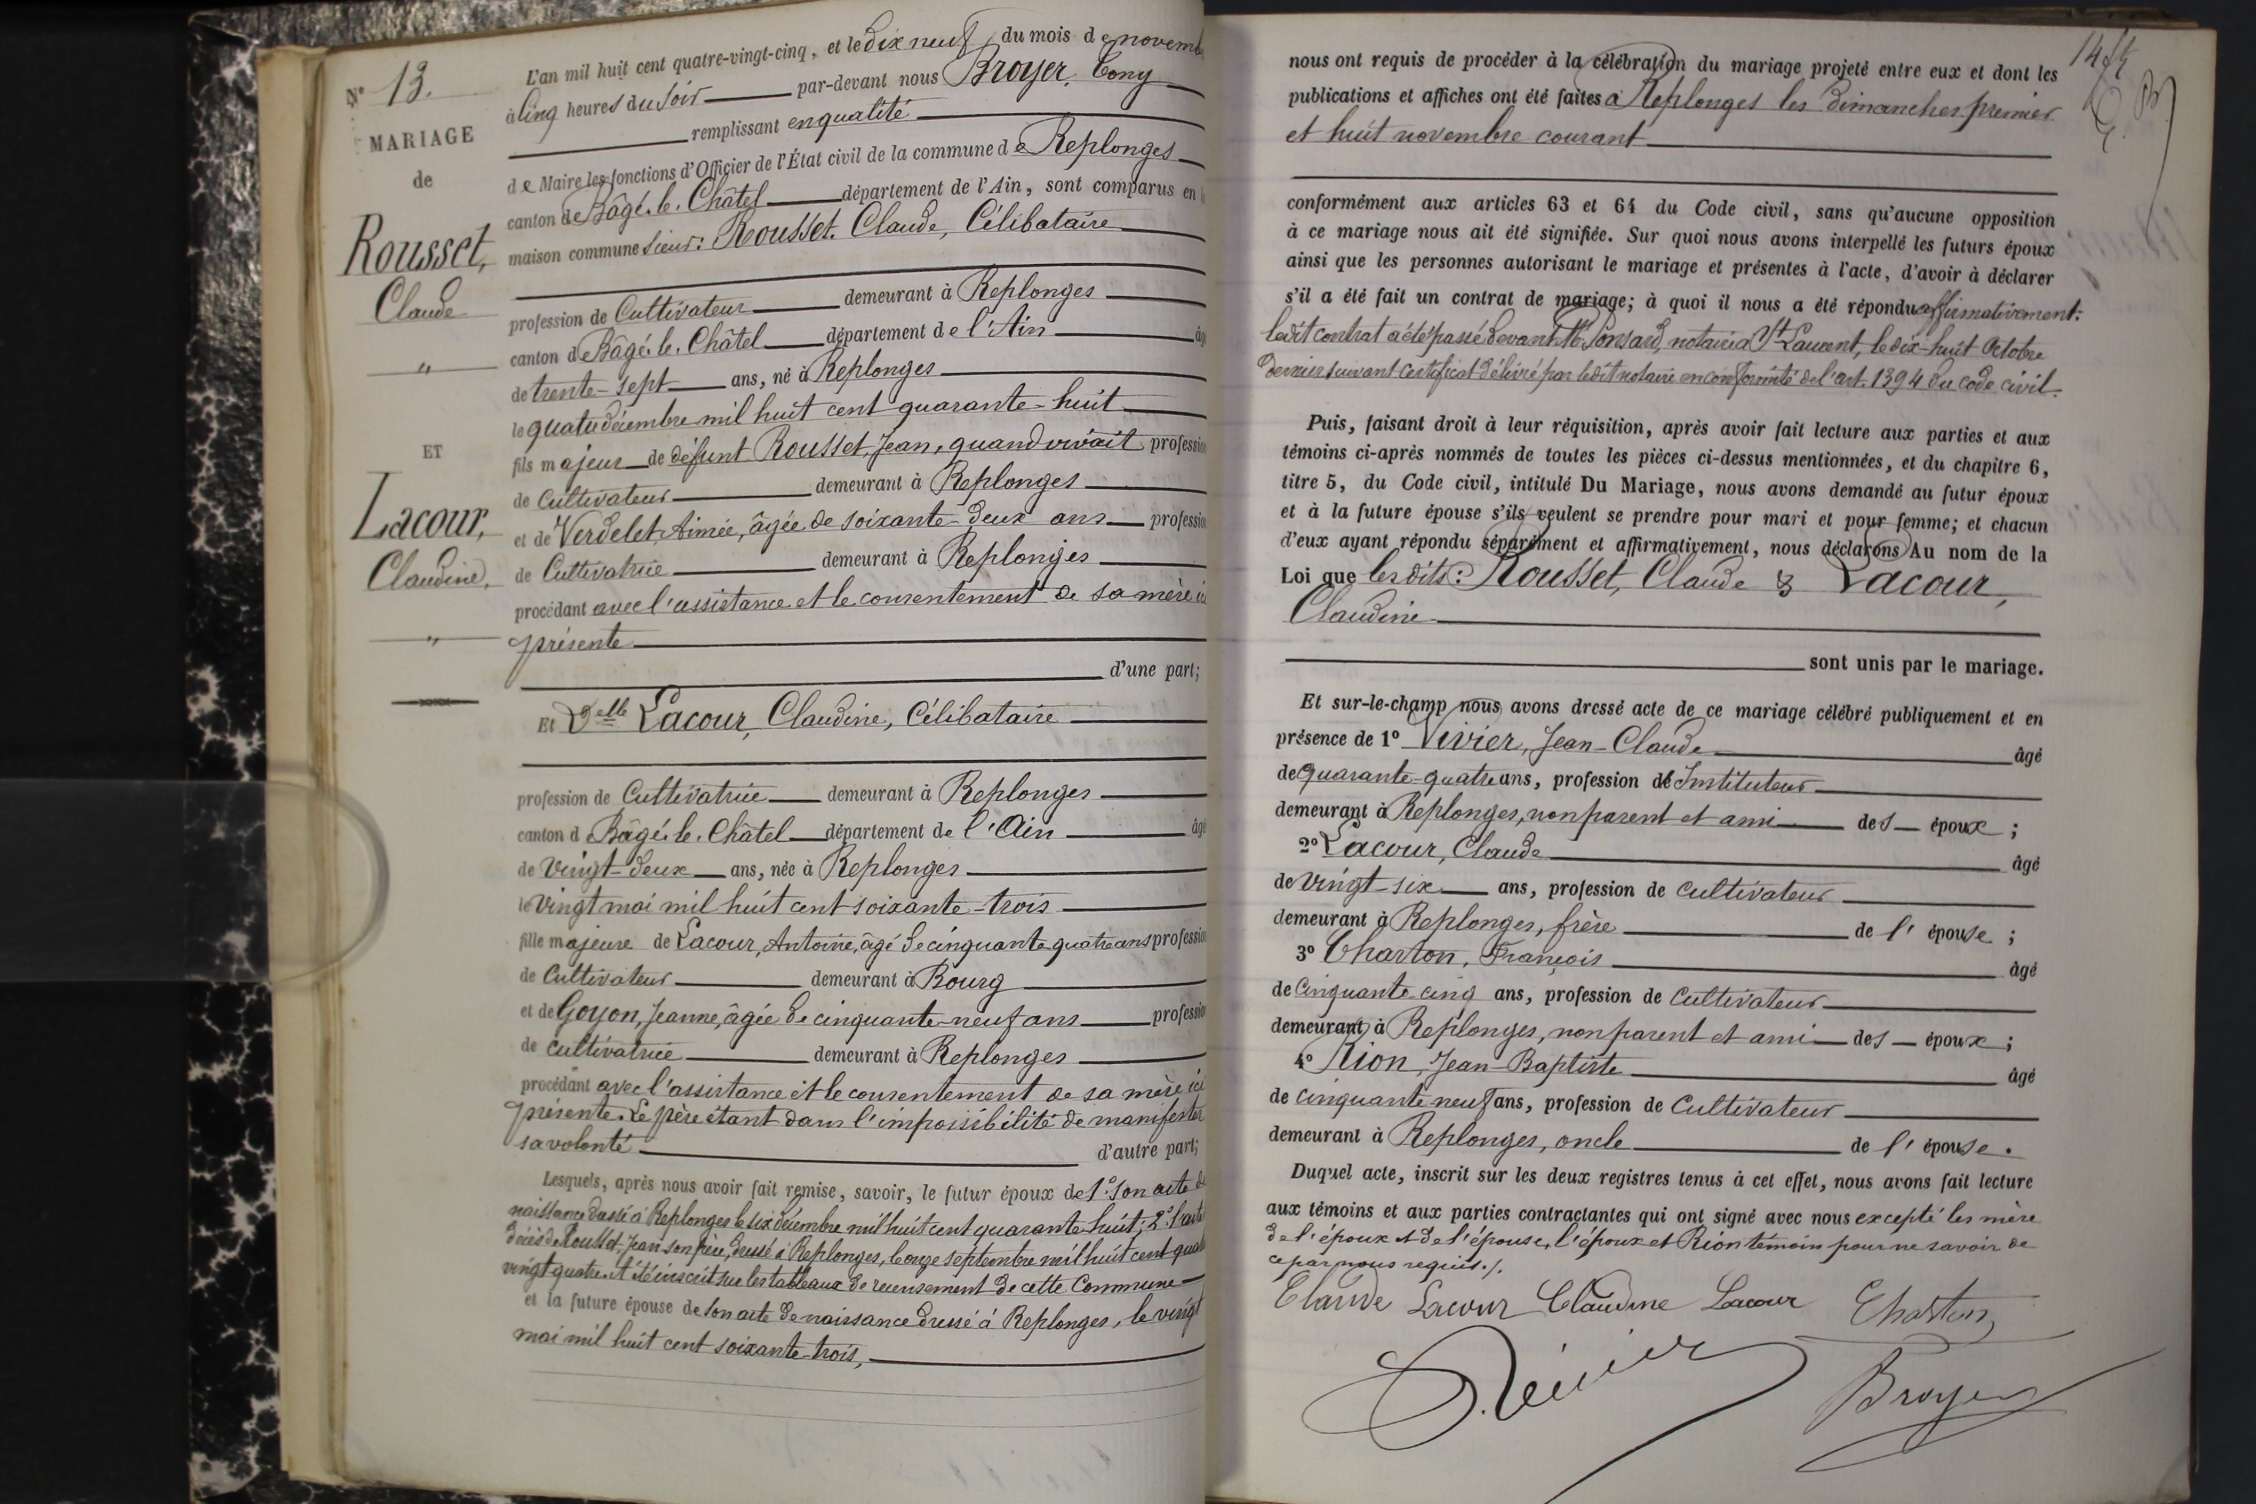 N° 13.
MARIAGE
de
Rousset,
Claude
"
ET
Lacour,
Claudine,
"
L'an mil huit cent quatre-vingt-cinq, et le dix neuf du mois de novemb
à cinq heures du soir par-devant nous Broyer, Tony
remplissant en qualité
de Maire les fonctions d'Officier de l'État civil de la commune de Replonges
canton de Bâgé-le-Châtel département de l'Ain, sont comparus en la
maison commune sieur: Rousset, Claude, Célibataire
profession de Cultivateur demeurant à Replonges
canton de Bâgé-le-Châtel département de l'Ain âg
de trente-sept ans, né à Replonges
le quatre décembre mil huit cent quarante-huit
fils majeur de défunt Rousset, Jean, quand vivait profession
de Cultivateur demeurant à Replonges
et de Verdelet, Aimée, âgée de soixante-deux ans profession
de Cultivatrice demeurant à Replonges
procédant avec l'assistance et le consentement de sa mère ici
présente
d'une part;
Et Delle Lacour, Claudine, Célibataire
profession de Cultivatrice demeurant à Replonges
canton de Bâgé-le-Châtel département de l'Ain âgé
de vingt-deux ans, née à Replonges
le vingt mai mil huit cent soixante-trois
fille majeure de Lacour, Antoine, âgé de cinquante quatre ans profession
de Cultivateur demeurant à Bourg
et de Goyon, Jeanne, âgée de cinquante-neuf ans profession
de cultivatrice demeurant à Replonges
procédant avec l'assistance et le consentement de sa mère ici
présente. Le père étant dans l'impossibilité de manifester
sa volonté d'autre part;
Lesquels, après nous avoir fait remise, savoir, le futur époux de 1° son acte de
naissance dressé à Replonges le six décembre mil huit cent quarante huit; 2° l'acte
décès de Rousset, Jean son père, dressé à Replonges, le onze septembre mil huit cent quatre
vingt quatre. A été inscrit sur les tableaux de recensement de cette Commune
et la future épouse de son acte de naissance dressé à Replonges, le vingt
mai mil huit cent soixante-trois,
nous ont requis de procéder à la célébration du mariage projeté entre eux et dont les
publications et affiches ont été faites à Replonges les dimanches premier
et huit novembre courant
conformément aux articles 63 et 64 du Code civil, sans qu'aucune opposition
à ce mariage nous ait été signifiée. Sur quoi nous avons interpellé les futurs époux
ainsi que les personnes autorisant le mariage et présentes à l'acte, d'avoir à déclarer
s'il a été fait un contrat de mariage; à quoi il nous a été répondu affirmativement:
ledit contrat a été passé devant Me Ponsard, notaire à St Laurent, le dix-huit Octobre
dernier suivant certificat délivré par ledit notaire en conformité de l'art. 1394 du code civil.
Puis, faisant droit à leur réquisition, après avoir fait lecture aux parties et aux
témoins ci-après nommés de toutes les pièces ci-dessus mentionnées, et du chapitre 6,
titre 5, du Code civil, intitulé Du Mariage, nous avons demandé au futur époux
et à la future épouse s'ils veulent se prendre pour mari et pour femme; et chacun
d'eux ayant répondu séparément et affirmativement, nous déclarons Au nom de la
Loi que les dits: Rousset, Claude & Lacour,
Claudine
sont unis par le mariage.
Et sur-le-champ nous avons dressé acte de ce mariage célébré publiquement et en
présence de 1° Vivier, Jean-Claude âgé
de quarante-quatre ans, profession de Instituteur
demeurant à Replonges, non parent et ami des époux;
2° Lacour, Claude âgé
de vingt-six ans, profession de cultivateur
demeurant à Replonges, frère de l'épouse;
3° Charton, François âgé
de cinquante cinq ans, profession de Cultivateur
demeurant à Replonges, non parent et ami des époux;
4° Rion, Jean-Baptiste âgé
de cinquante neuf ans, profession de Cultivateur
demeurant à Replonges, oncle de l'épouse.
Duquel acte, inscrit sur les deux registres tenus à cet effet, nous avons fait lecture
aux témoins et aux parties contractantes qui ont signé avec nous excepté les mère
de l'époux et de l'épouse, l'époux et Rion témoin pour ne savoir de
ce par nous requis./.
Claude Lacour Claudine Lacour Charton
Vivier
Broyer